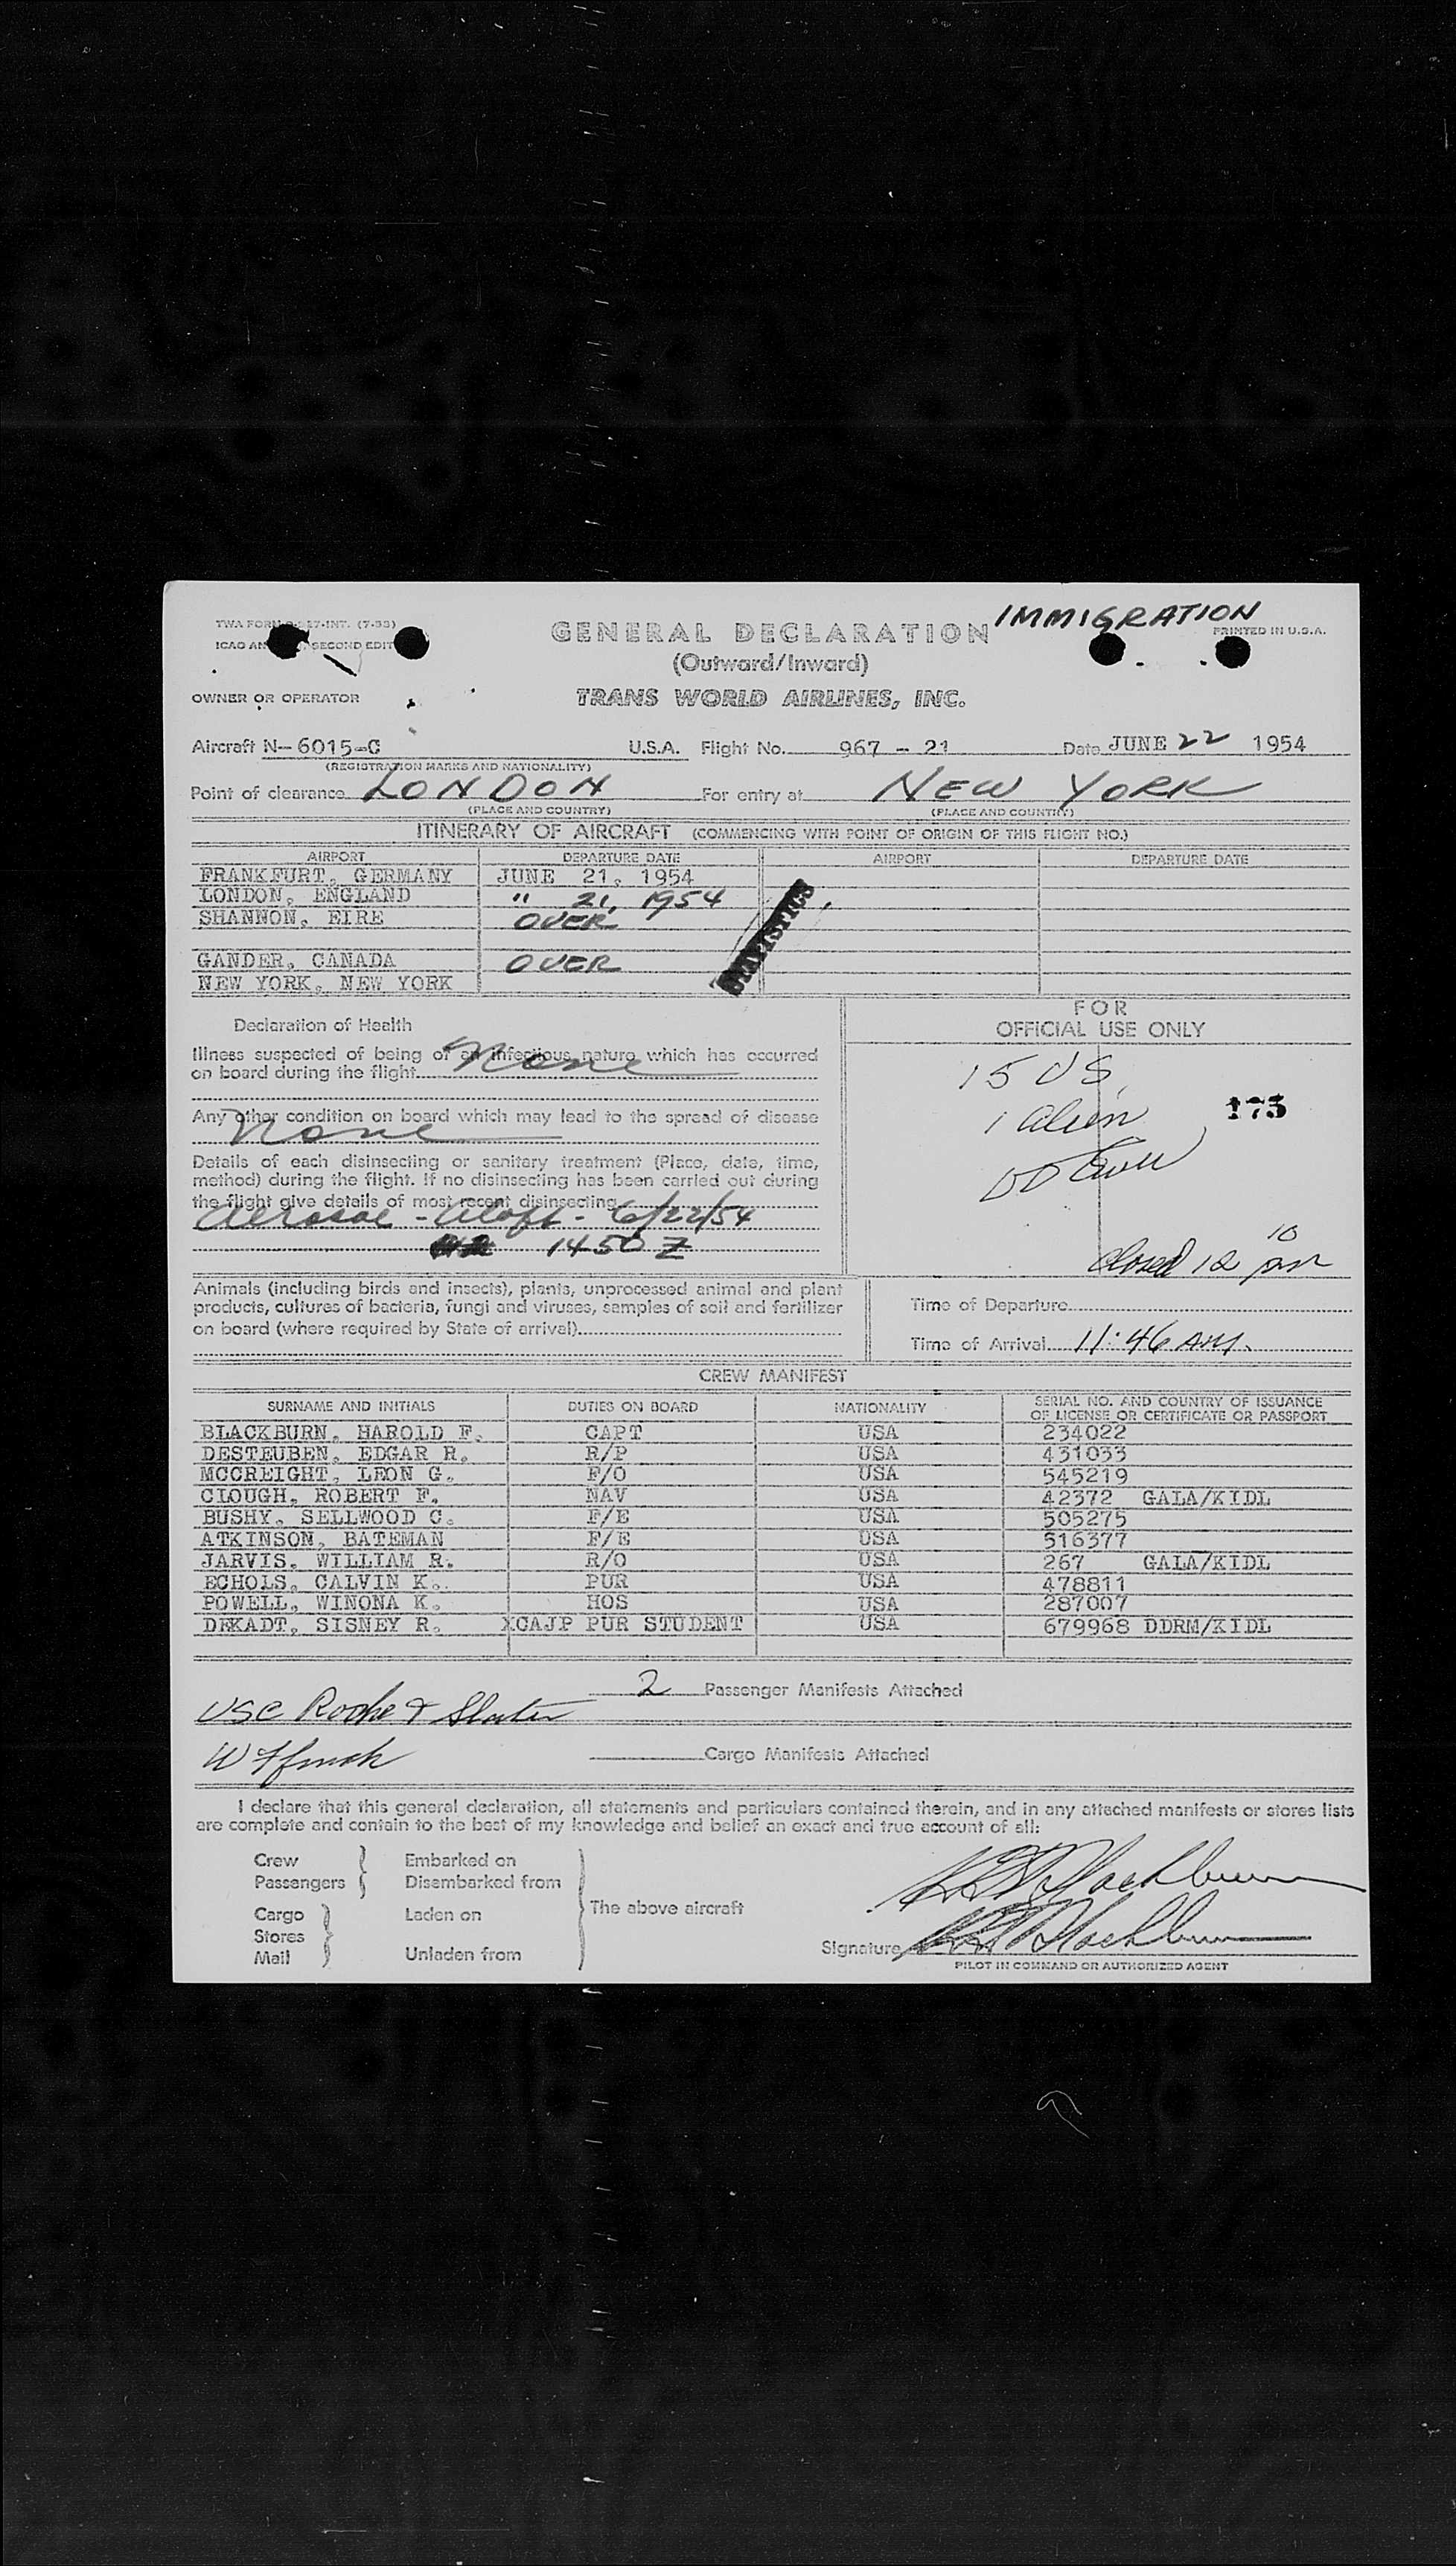 IMMIGRATION
TWA FORM (7-53)
GENERAL DECLARATION
PRINTED IN U.S.A.
ICAO SECOND EDIT
(Outward/Inward)
OWNER OR OPERATOR TRANS WORLD AIRLINES, INC.
Aircraft N-6015-C U.S.A. Flight No. 967 - 21 Date JUNE 22 1954
(REGISTRATION MARKS AND NATIONALITY)
Point of clearance LONDON For entry at NEW YORK
(PLACE AND COUNTRY) (PLACE AND COUNTRY)
ITINERARY OF AIRCRAFT (COMMENCING WITH POINT OF ORIGIN OF THIS FLIGHT NO.)
AIRPORT DEPARTURE DATE AIRPORT DEPARTURE DATE
FRANKFURT, GERMANY JUNE 21, 1954
LONDON, ENGLAND " 21, 1954
SHANNON, EIRE OVER
STATISTICS
GANDER, CANADA OVER
NEW YORK, NEW YORK
Declaration of Health
Illness suspected of being of an infectious nature which has occurred
on board during the flight None
Any other condition on board which may lead to the spread of disease
None
Details of each disinsecting or sanitary treatment (Place, date, time,
method) during the flight. If no disinsecting has been carried out during
the flight give details of most recent disinsecting
Aerosol - Aloft - 6/22/54
1450 Z
FOR
OFFICIAL USE ONLY
15 US
1 alien
175
10
closed 12 pm
Animals (including birds and insects), plants, unprocessed animal and plant
products, cultures of bacteria, fungi and viruses, samples of soil and fertilizer
on board (where required by State of arrival)
Time of Departure
Time of Arrival 11:46 AM.
CREW MANIFEST
SURNAME AND INITIALS DUTIES ON BOARD NATIONALITY SERIAL NO. AND COUNTRY OF ISSUANCE
OF LICENSE OR CERTIFICATE OR PASSPORT
BLACKBURN, HAROLD F. CAPT USA 234022
DESTEUBEN, EDGAR R. R/P USA 431033
MCCREIGHT, LEON G. F/O USA 545219
CLOUGH, ROBERT F. NAV USA 42372 GALA/KIDL
BUSHY, SELLWOOD C. F/E USA 505275
ATKINSON, BATEMAN F/E USA 516377
JARVIS, WILLIAM R. R/O USA 267 GALA/KIDL
ECHOLS, CALVIN K. PUR USA 478811
POWELL, WINONA K. HOS USA 287007
DEKADT, SISNEY R. XCAJP PUR STUDENT USA 679968 DDRM/KIDL
2 Passenger Manifests Attached
USC Roche & Slater
Cargo Manifests Attached
I declare that this general declaration, all statements and particulars contained therein, and in any attached manifests or stores lists
are complete and contain to the best of my knowledge and belief an exact and true account of all:
Crew Embarked on
Passengers Disembarked from
The above aircraft
Cargo Laden on
Stores
Mail Unladen from
H F Blackburn
Signature H F Blackburn
PILOT IN COMMAND OR AUTHORIZED AGENT